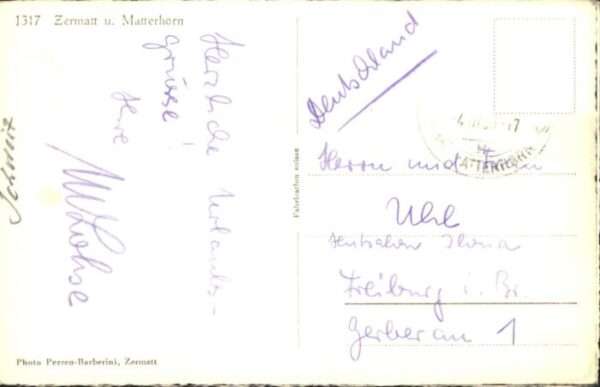 1317 Zermatt u. Matterhorn
Herzliche Urlaubs-
grüsse!
Ihre
Schweiz
Photo Perren-Barberini, Zermatt
Deutschland
MATTERHORN
Herrn und Frau
Uhl
Freiburg i. Br.
Gerberau 1